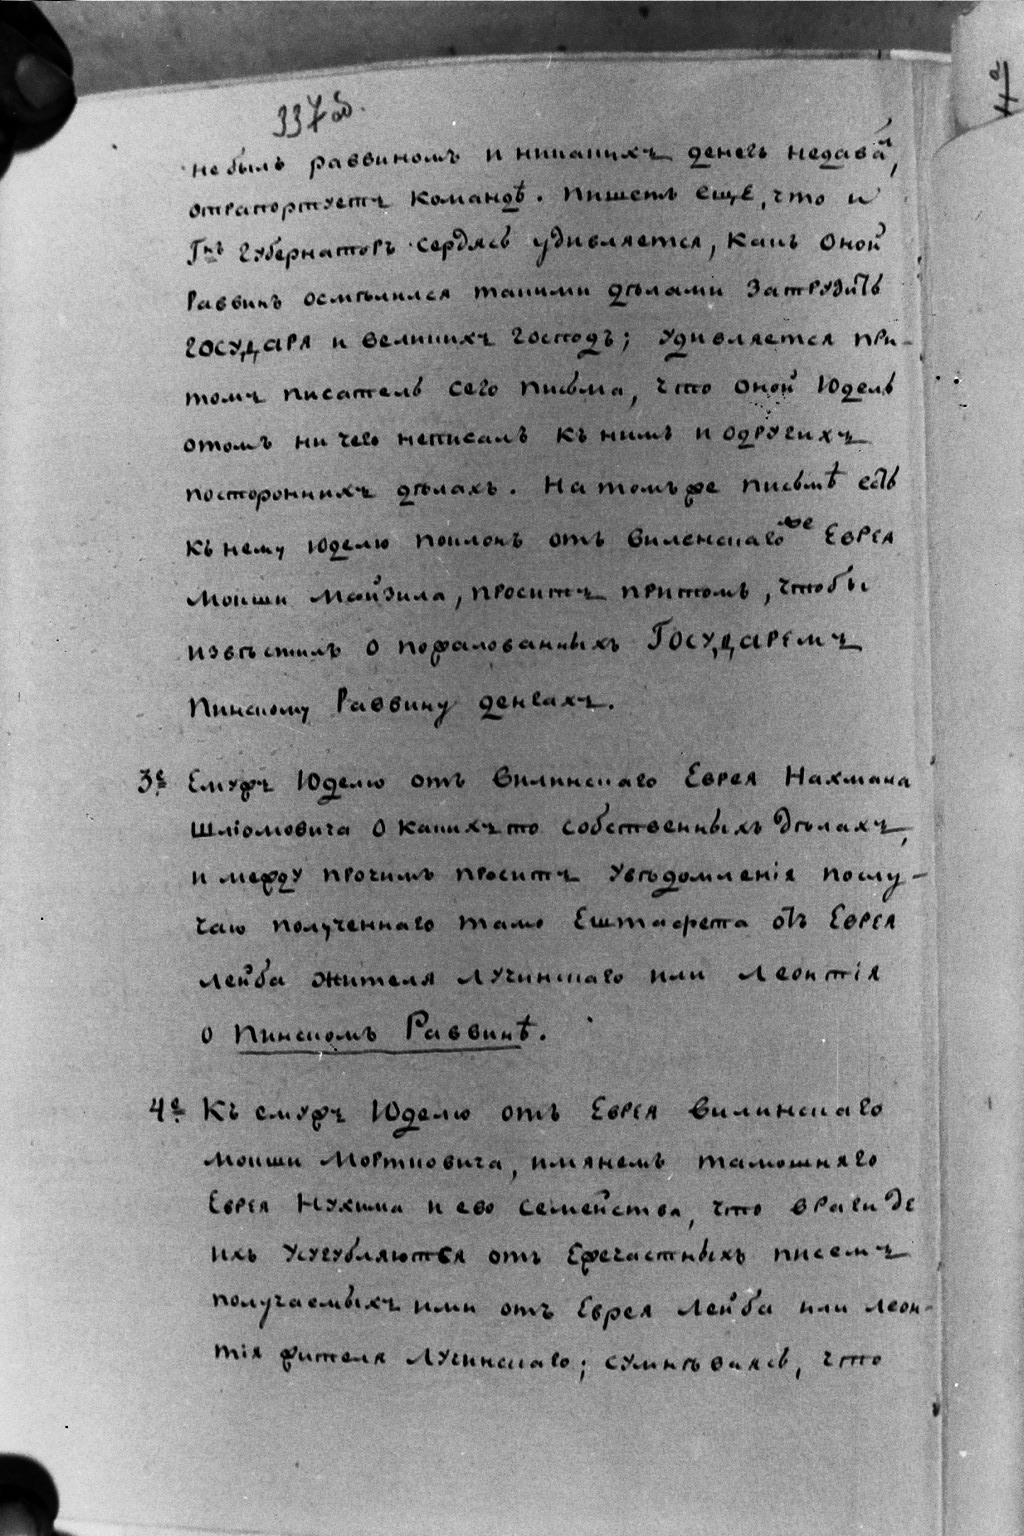 337 об.
небылъ раввиномъ и никакихъ денегъ недавалъ,
отрапортуетъ командѣ. Пишетъ еще, что и
Гнъ Губернаторъ сердясь удивляется, какъ оной
Раввинъ осмѣлился такими дѣлами затрудить
ГОСУДАРЯ и великихъ господъ; удивляется при-
томъ писатель сего письма, что оной Юдель
отомъ ничего неписалъ къ нимъ и одругихъ
постороннихъ дѣлахъ. На томъ же письмѣ есть
къ нему Юделю поклонъ отъ виленскаго же Еврея
Мовши Майзила, проситъ притомъ, чтобы
извѣстилъ о пожалованныхъ ГОСУДАРЕМЪ
Пинскому Раввину деньгахъ.
3е Емужъ Юделю отъ вилинскаго Еврея Нахмана
Шліомовича о какихъ то собственныхъ дѣлахъ,
и между прочимъ проситъ увѣдомленія послу-
чаю полученнаго тамо Ештафета отъ Еврея
Лейба жителя Лучинскаго или Леонтія
о Пинскомъ Раввинѣ.
4е Къ емужъ Юделю отъ Еврея вилинскаго
Мовши Мортковича, имянемъ тамошняго
Еврея Нухима и его семейства, что враги де
ихъ усугубляются отъ Ежечастныхъ писемъ
получаемыхъ ими отъ Еврея Лейба или Леон-
тія жителя Лучинскаго; сумнѣваясь, что